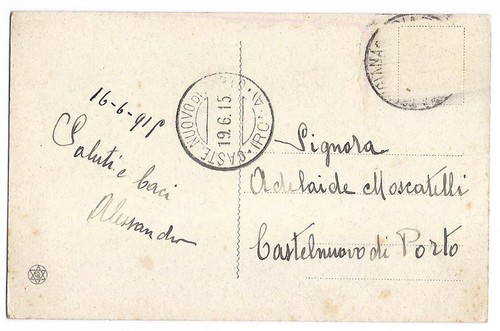 16-6-915
Saluti e baci
Alessandro
CASTELNUOVO DI
19.6.15
Signora
Adelaide Moscatelli
Castelnuovo di Porto